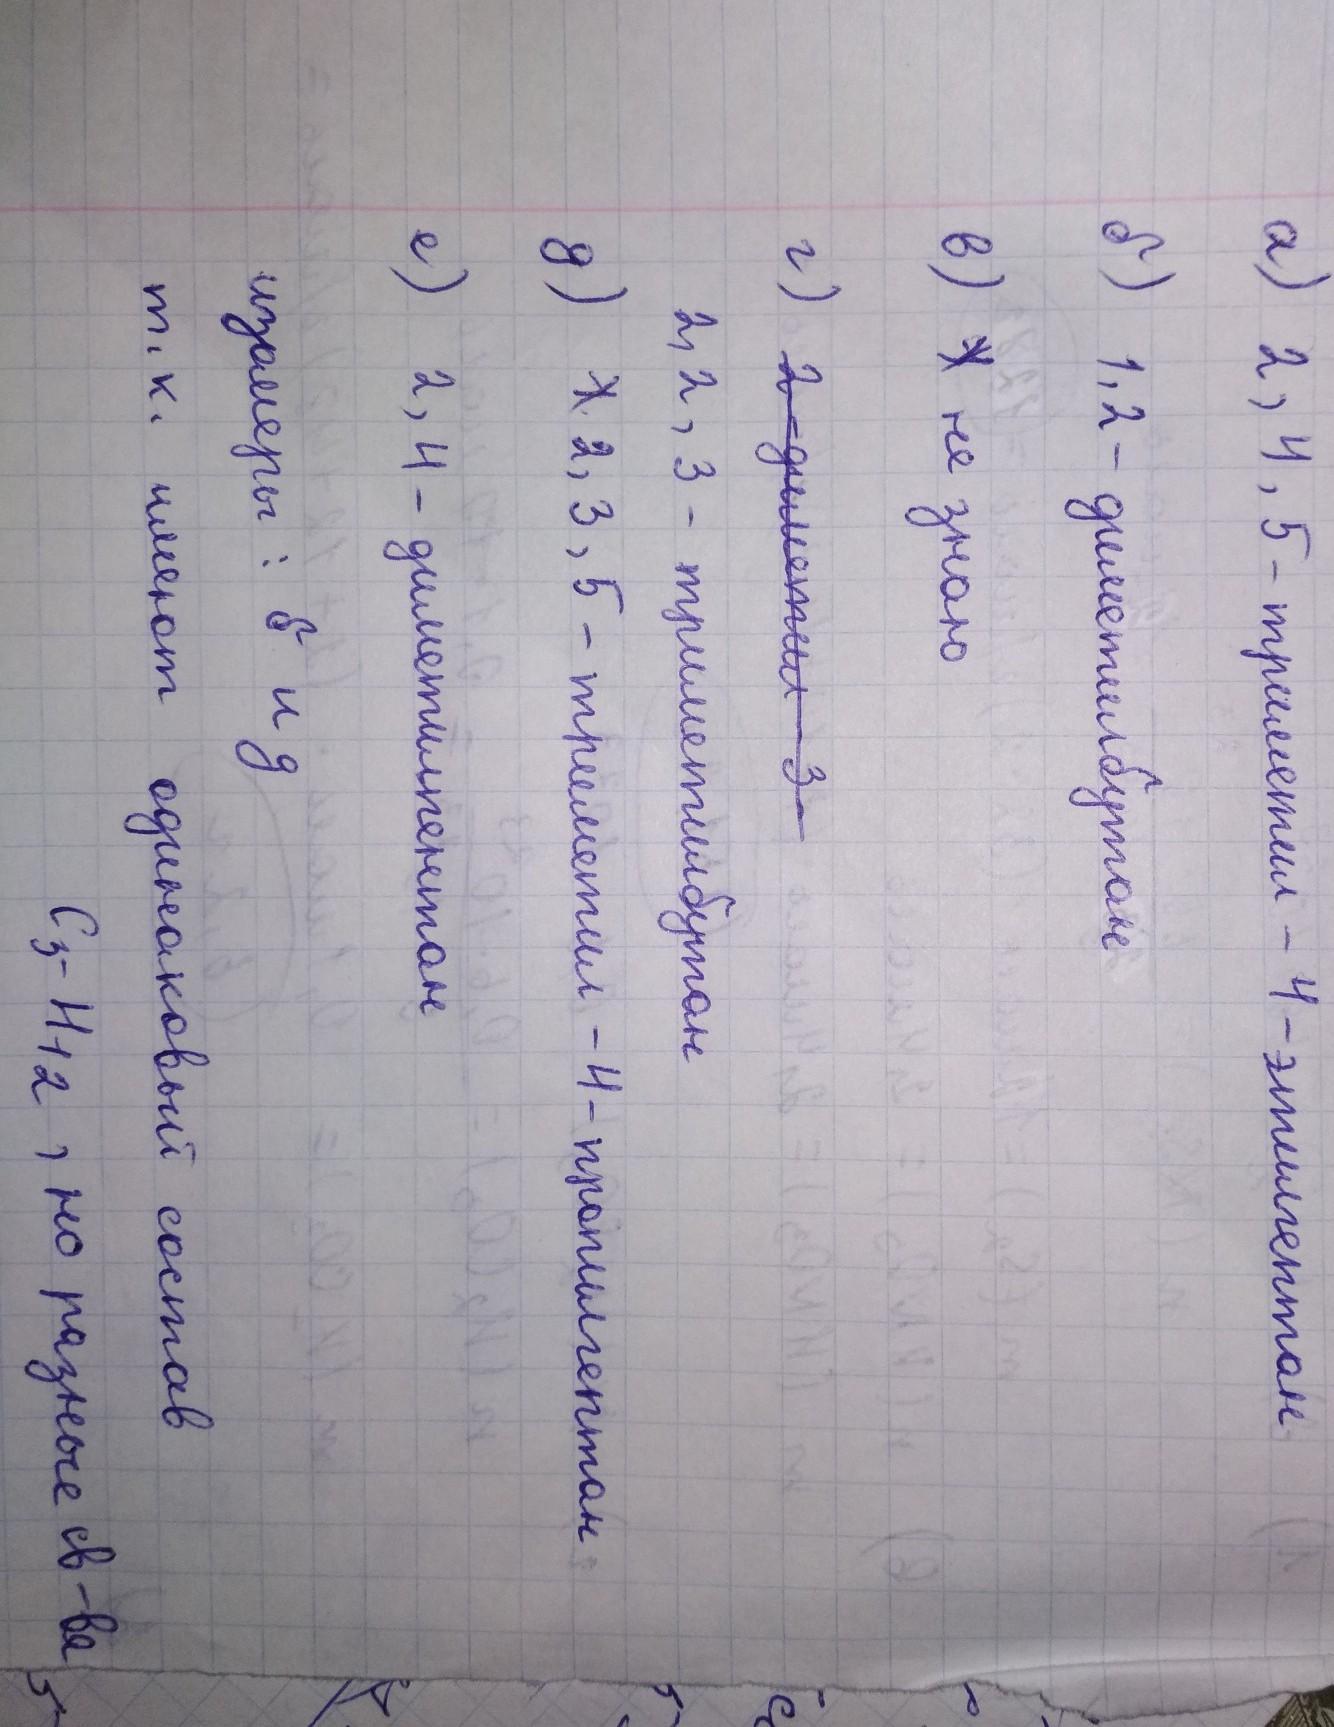 а) 2, 4, 5 - триметил - 4 - этилгептан
б) 1, 2 - диметилбутан
в) не знаю
г) 2 - диметил - 3 -
2, 2, 3 - триметилбутан
д) 2, 3, 5 - триметил - 4 - пропилгептан
е) 2, 4 - диметилпентан
изомеры: б и д
т. к. имеют одинаковый состав
C5-H12, но разные св-ва